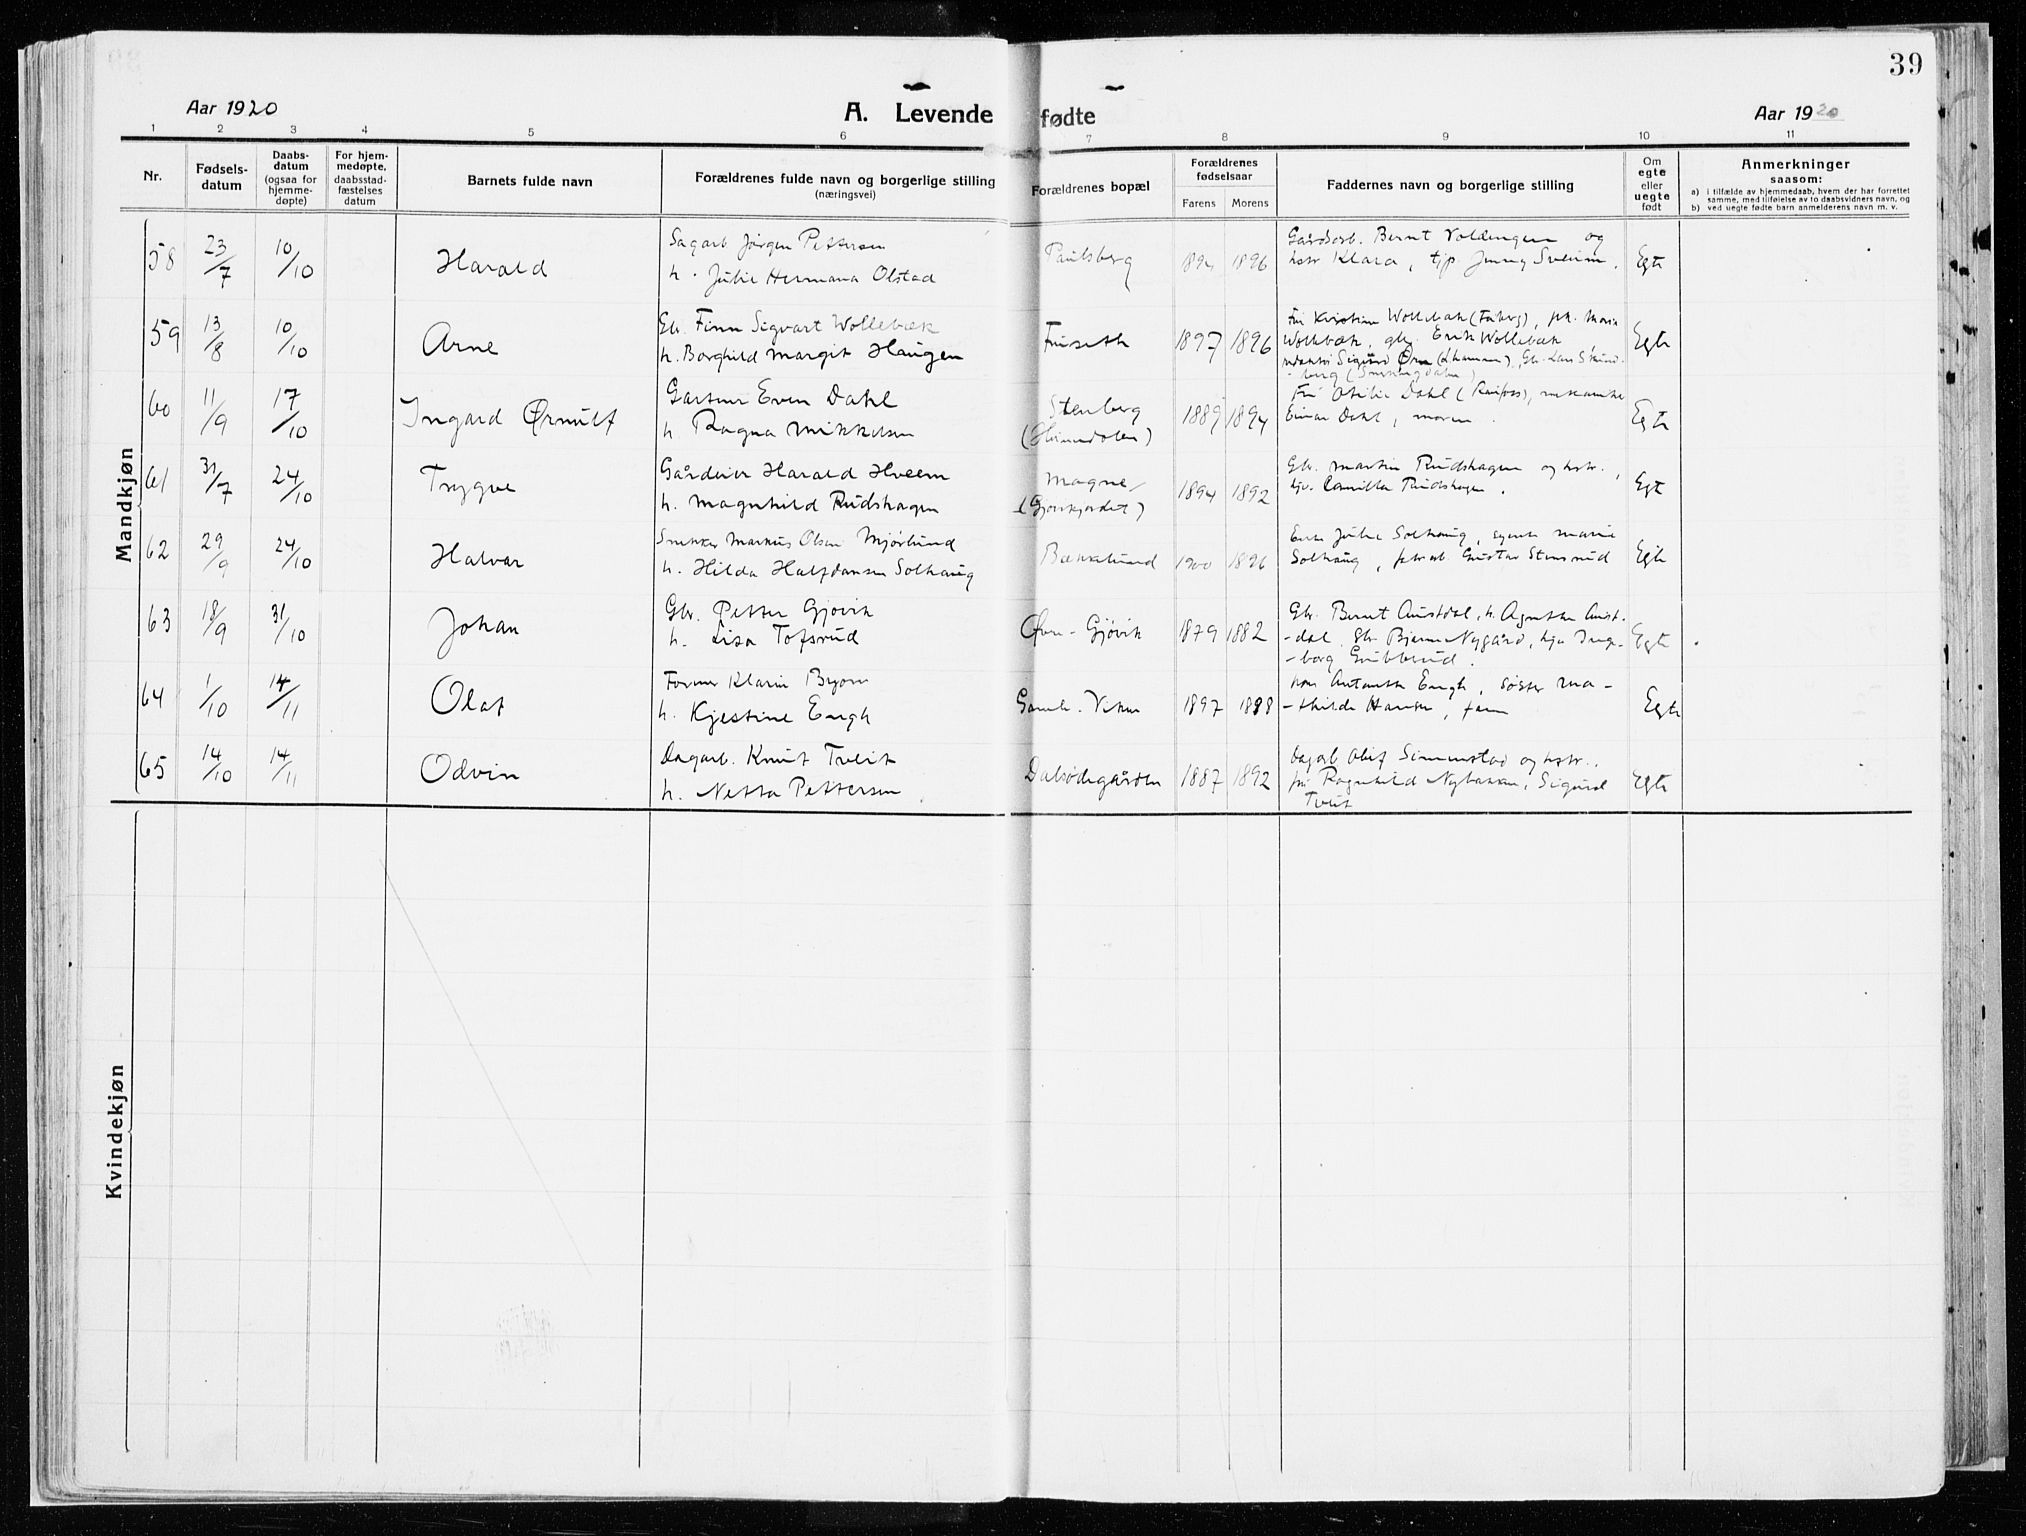 39
Aar 1920
A. Levende fødte
Aar 1920
1 2 3 4 5 6 7 8 9 10 11
Nr.
Fødsels-
datum
Daabs-
datum
(ogsaa for
hjemme-
døpte)
For hjem-
medøpte,
daabsstad-
fæstelses
datum
Barnets fulde navn
Forældrenes fulde navn og borgerlige stilling
(næringsvei)
Forældrenes bopæl
Forældrenes
fødselsaar
Farens Morens
Faddernes navn og borgerlige stilling
Om
egte
eller
uegte
født
Anmerkninger
saasom:
a) i tilfælde av hjemmedaab, hvem der har forrettet
samme, med tilføielse av to daabsvidners navn, og
b) ved uegte fødte barn anmelderens navn m. v.
Mandkjøn
58 23/7 10/10 Harald
Sagarb. Jørgen Pettersen
h. Julie Hermana Olstad
Paulsberg 1894 1896
Gårdsarb. Bernt Voldengen og
hstr Klara, t/p. Jenny Sveum.
Egte
59 13/8 10/10 Arne
Gbr. Finn Sigvart Wollebæk
h. Borghild Margit Haugen
Fruseth 1897 1896
Fru Kristine Wollebæk (Faberg), pk. Marie
Wollebæk, gbr. Erik Wollebæk
Sigurd (Lhammer), Gbr. Lars
Egte
60 11/9 17/10 Ingard Ørnulf
Gartner Even Dahl
h. Ragna Mikkelsen
Stenberg
(Hunndalen)
1889 1894
Fru Otilie Dahl (Raufoss), mekaniker
Einar Dahl, moren.
Egte
61 31/7 24/10 Trygve
Gårdeier Harald Hveem
h. Magnhild Rudshagen
Magne/
(Gjøvikjordet)
1894 1892
Gbr. Martin Rudshagen og hstr.,
hjv. Camilla Rudshagen.
Egt
62 29/9 24/10 Halvar
Snekker Markus Olsen Mjørlund
h. Hilda Halfdansen Solhaug
Bækkelund 1900 1896
Enke Julie Solhaug, Marie
Solhaug, Gustav Stensrud
Egte
63 18/9 31/10 Johan
Gbr. Petter Gjøvik
h. Lisa Tofsrud
Øvre-Gjøvik 1879 1882
Gbr. Bernt Austdal, h. Agnethe Aust-
-dal, Gbr Bjarne Nygård, hju Inge-
-borg Grubberud.
Egte
64 1/10 14/11 Olaf
Former Klarin Bryom
h. Kjestine Engh
Gamle. Viken 1897 1898
Antonette Engh, Søster Ma-
-thilde Hansen, faren
Egte
65 14/10 14/11 Odvin
Dagarb. Knut Tveit
h. Netta Pettersen
Dalsødegården 1887 1892
Dagarb Olaf Simenstad og hstr.,
fru Ragnhild Nybakken, Sigurd
Tveit
Egte
Kvindekjøn